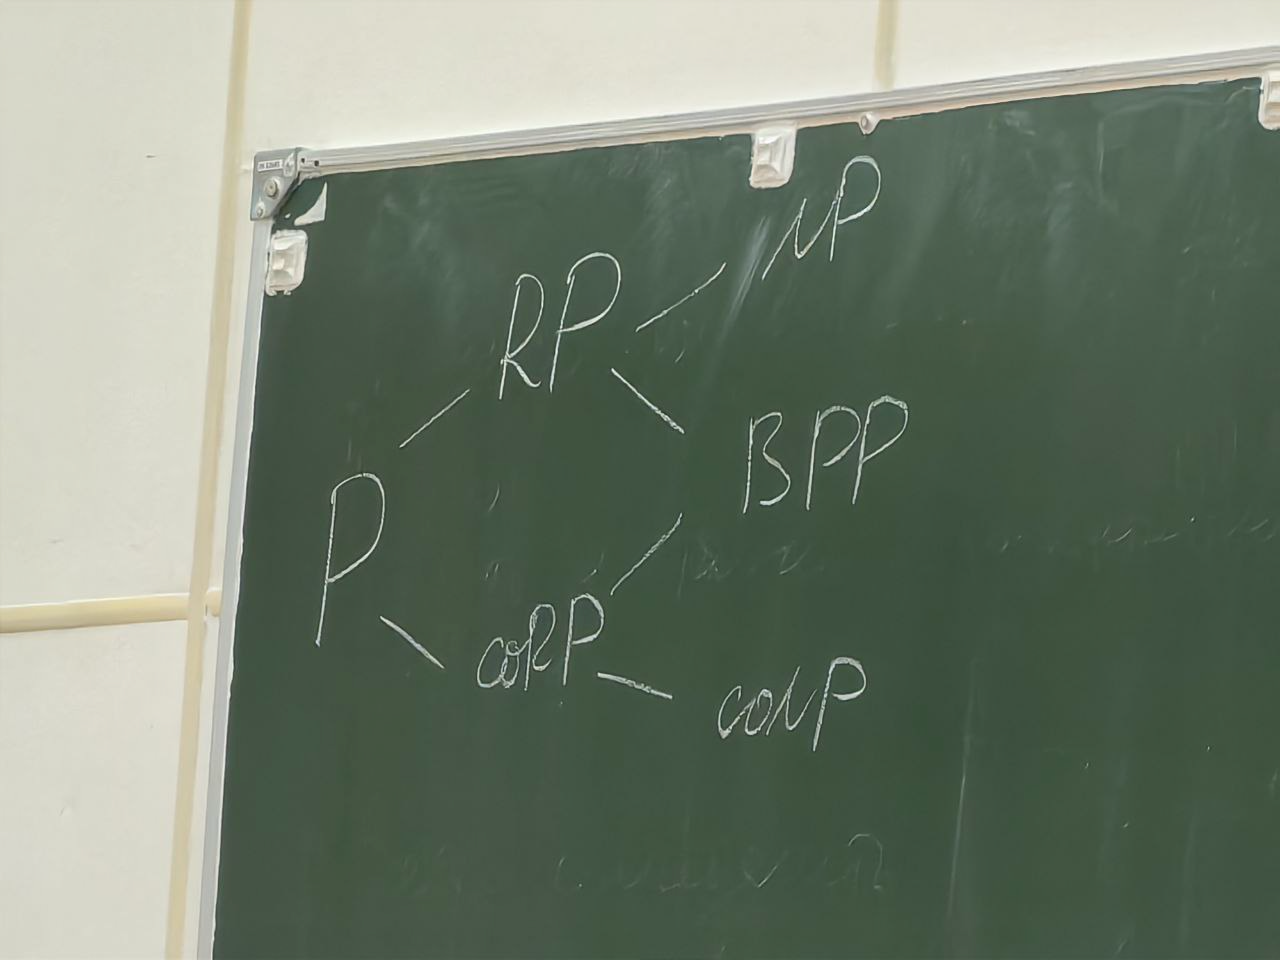 NP
RP
BPP
P
coRP
coNP